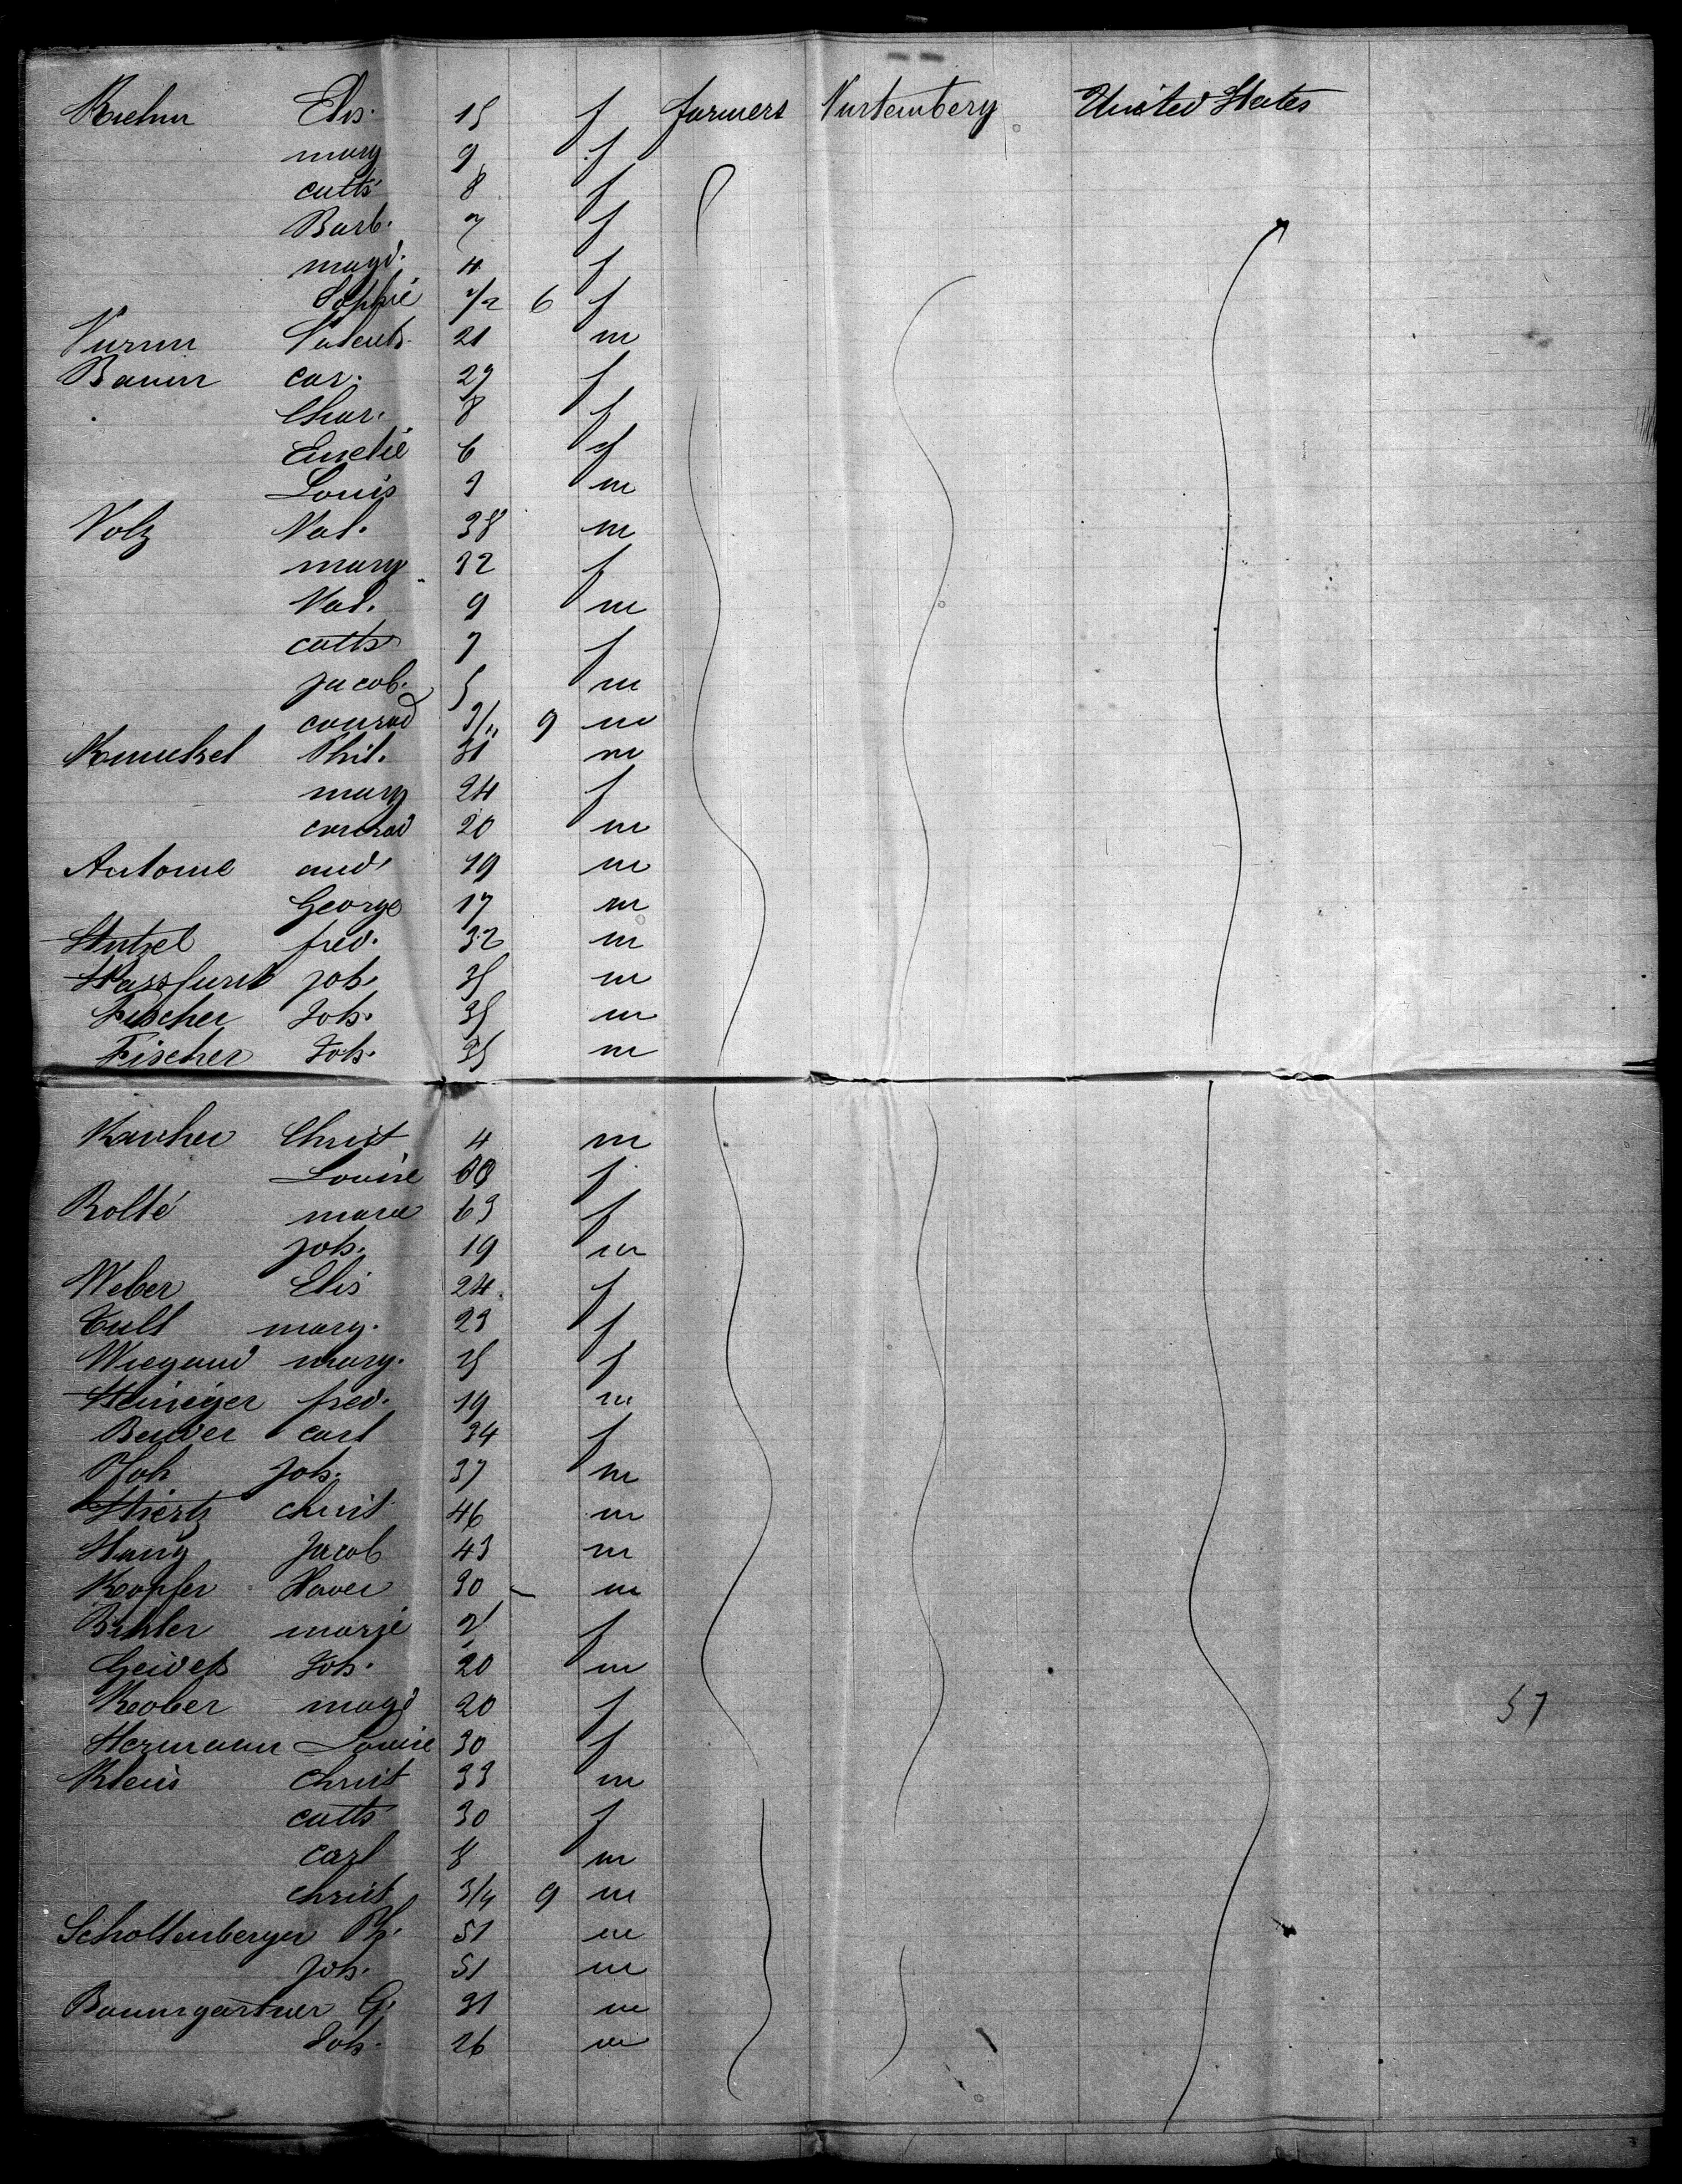 Kuehn Elis. 15 f farmers Wurtemberg United States
mary 9 f
cath 8 f
Barb. 7 f
magd. 4 f
Sophie 1/2 6 f
Wurm Valent. 21 m
Baum car. 29 f
Char. 8 f
Emelie 6 f
Louis 3 m
Volz Val. 38 m
mary 32 f
Val. 9 m
cath 7 f
Jacob. 5 m
conrad 9 m
Phil. 31 m
mary 24 f
conrad 20 m
Antoine and. 19 m
George 17 m
Stutzel fred. 32 m
Hassfurt joh. m
Fischer Joh. 35 m
Fischer Joh. 35 m
Karcher Christ 4 m
Louise f
Bolté marie 63 f
joh. 19 m
Weber Elis 24 f
mary. 23 f
Wiegand mary. f
Heiniger fred. 19 m
Bender carl 34 f
Joh. 37 m
christ 46 m
Haug Jacob 43 m
Kopfer Xaver 30 m
Bihler marie f
Joh. 20 m
Kober magd 20 f
Hermann Louise 30 f
Klein christ 33 m
cath 30 f
carl 8 m
christ 3/4 9 m
Schottenberger Ph. 51 m
Joh. 51 m
Baumgartner G. 31 m
Joh. 26 m
57